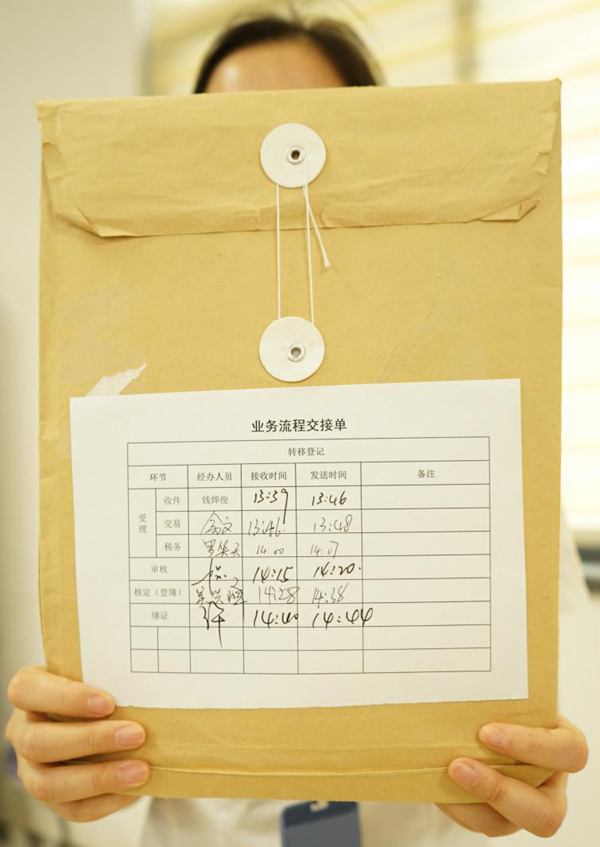 业务流程交接单
转移登记
环节 经办人员 接收时间 发送时间 备注
受理 收件 钱烨俊 13:39 13:46
交易 13:46 13:48
税务 14:00 14:07
审核 14:15 14:20
核定(登簿) 14:28 14:38
缮证 14:40 14:44